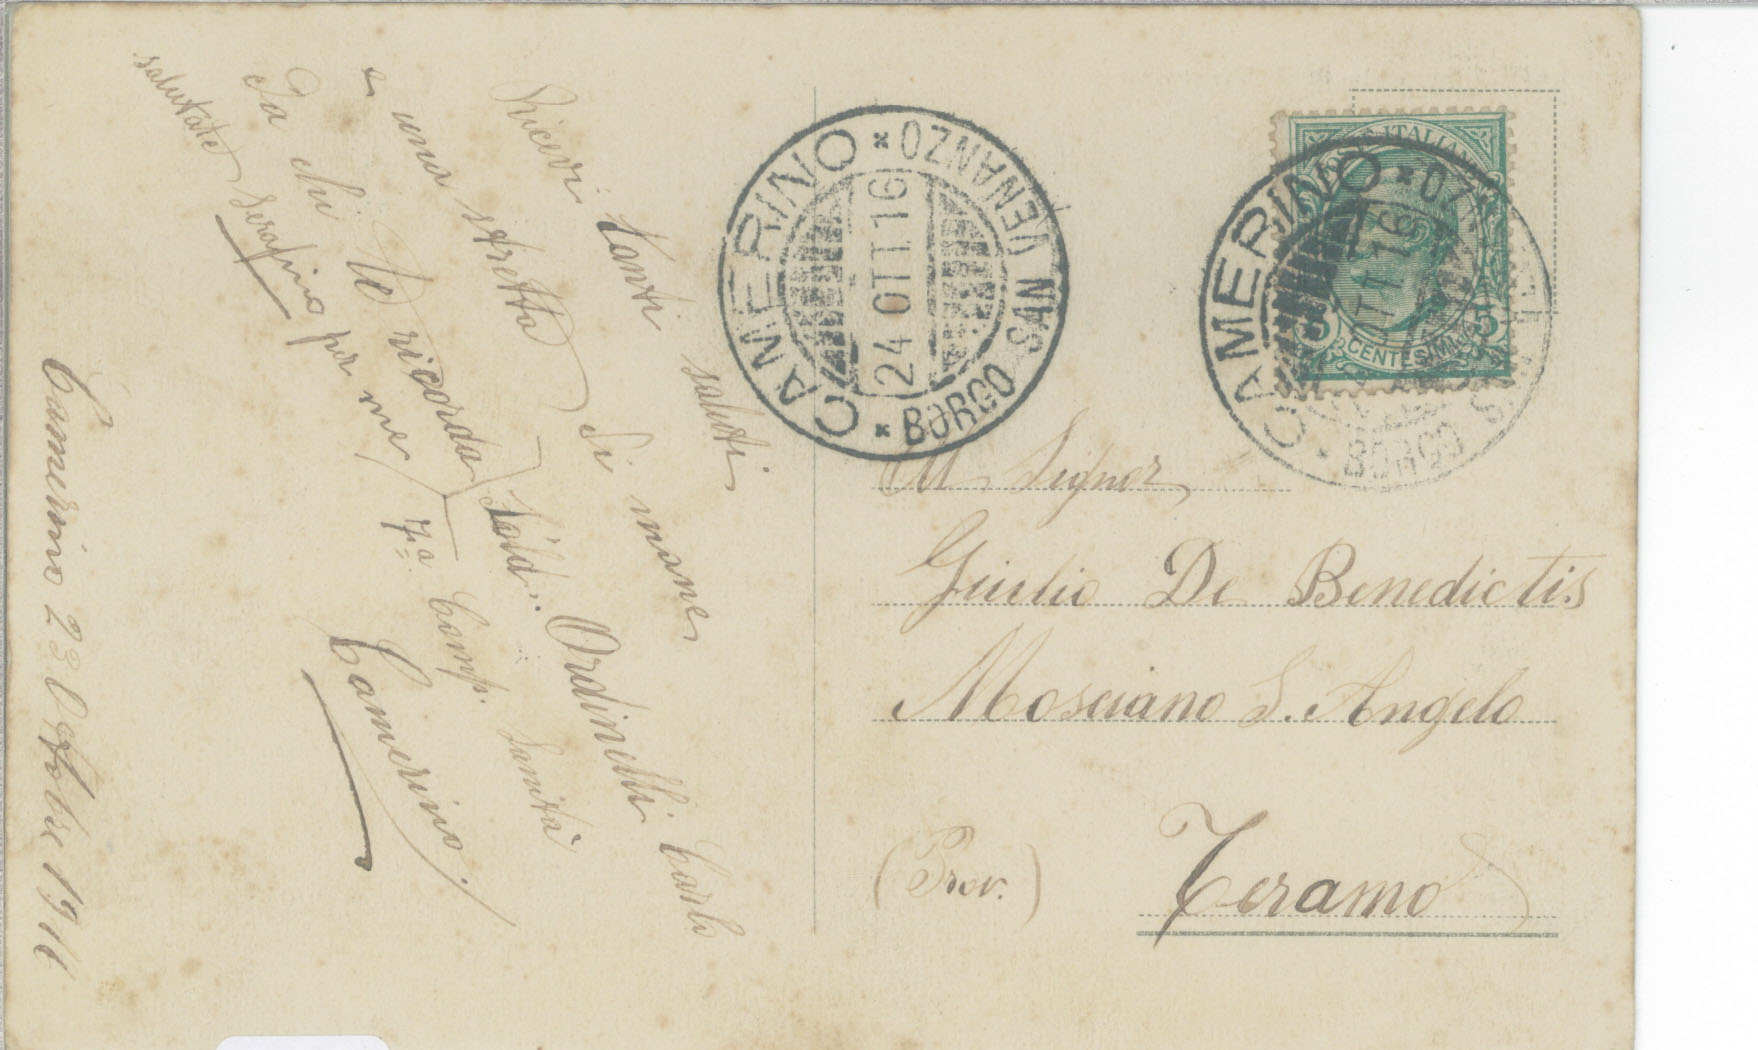 Camerino 23 Ottobre 1916
Ricevi tanti saluti
e una stretta di mano
Da chi te ricorda
Sold. Ordinelli Carlo
salutate Serafino per me
7ª Comp. Sanità
Camerino
CAMERINO
BORGO SAN VENANZO
24 OTT.16
POSTE ITALIANE
5 CENTESIMI 5
CAMERINO
BORGO S
OTT 16
Al Signor
Giulio De Benedictis
Mosciano S. Angelo
(Prov.) Teramo